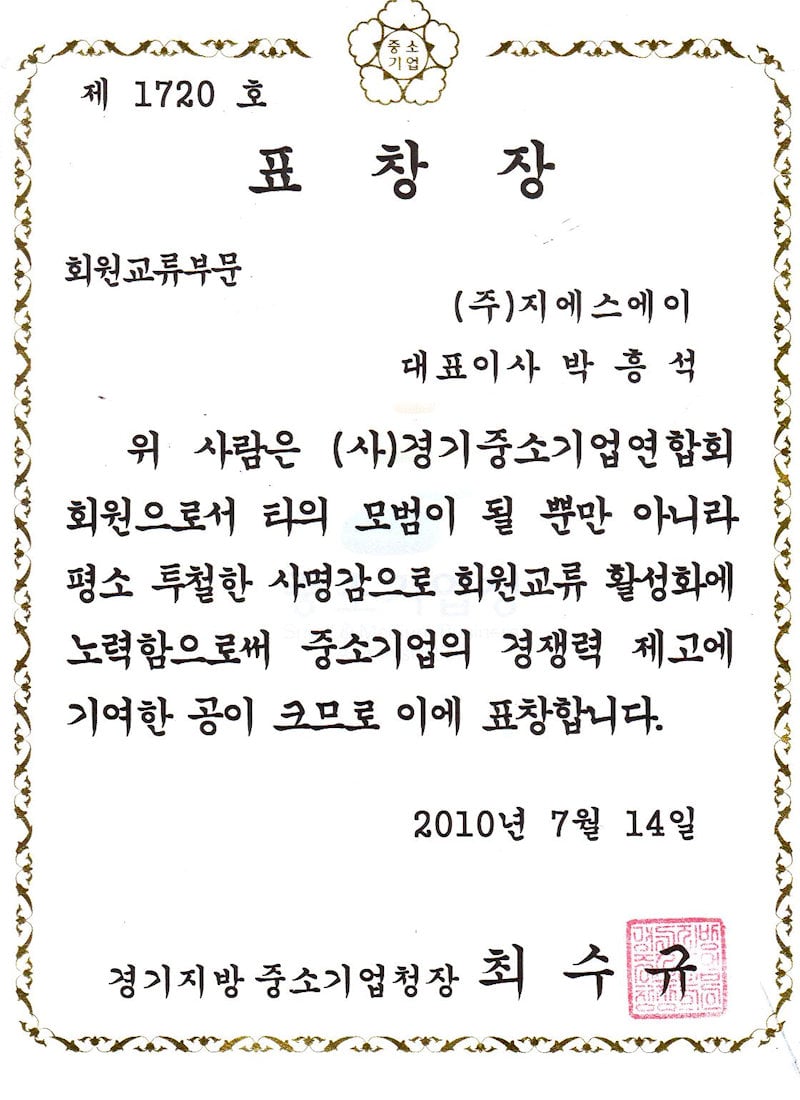 중소
기업
제 1720 호
표 창 장
회원교류부문
(주)지에스에이
대표이사 박 흥 석
위 사람은 (사)경기중소기업연합회
회원으로서 타의 모범이 될 뿐만 아니라
평소 투철한 사명감으로 회원교류 활성화에
노력함으로써 중소기업의 경쟁력 제고에
기여한 공이 크므로 이에 표창합니다.
2010년 7월 14일
경기지방중소기업청장 최 수 규